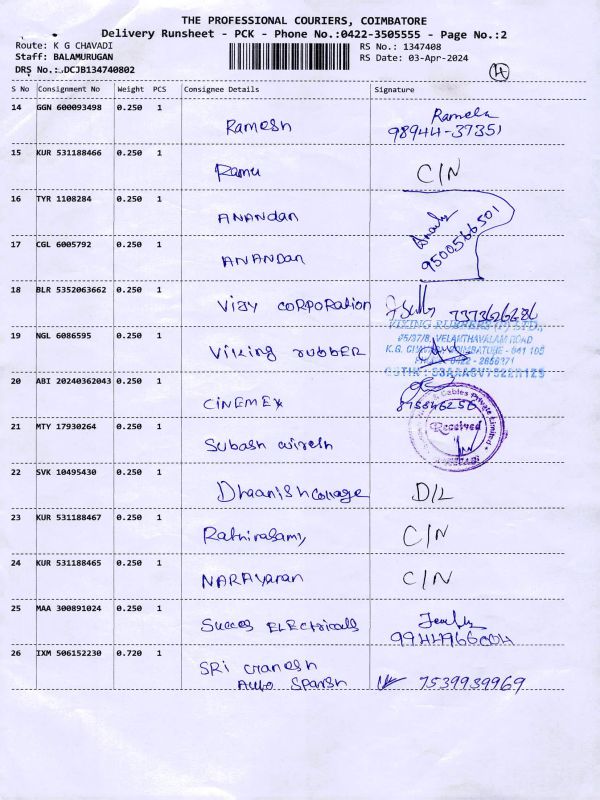 THE PROFESSIONAL COURIERS, COIMBATORE
Delivery Runsheet - PCK - Phone No.:0422-3505555 - Page No.:2
Route: K G CHAVADI
RS No.: 1347408
Staff: BALAMURUGAN
RS Date: 03-Apr-2024
DRS No.:.DCJB134740802
4
S No Consignment No Weight PCS Consignee Details Signature
14 GGN 600093498 0.250 1 Ramesh
98944-37351
15 KUR 531188466 0.250 1 Ramu C/N
16 TYR 1108284 0.250 1 ANANDAN
9500566501
17 CGL 6005792 0.250 1 ANANDAN
18 BLR 5352063662 0.250 1 VIJAY CORPORATION
19 NGL 6086595 0.250 1 Viking rubber
VIKING RUBBERS (P) LTD.,
VELANTHAVALAM ROAD
20 ABI 20240362043 0.250 1 CINEMEX
Cables Private Limited
Received
21 MTY 17930264 0.250 1 Subash
22 SVK 10495430 0.250 1 Dhaanish collage D/L
23 KUR 531188467 0.250 1 C/N
24 KUR 531188465 0.250 1 NARAYANAN C/N
25 MAA 300891024 0.250 1 Succes ELEctricals
26 IXM 506152230 0.720 1 SRi Ganesh
Auto 7539939969